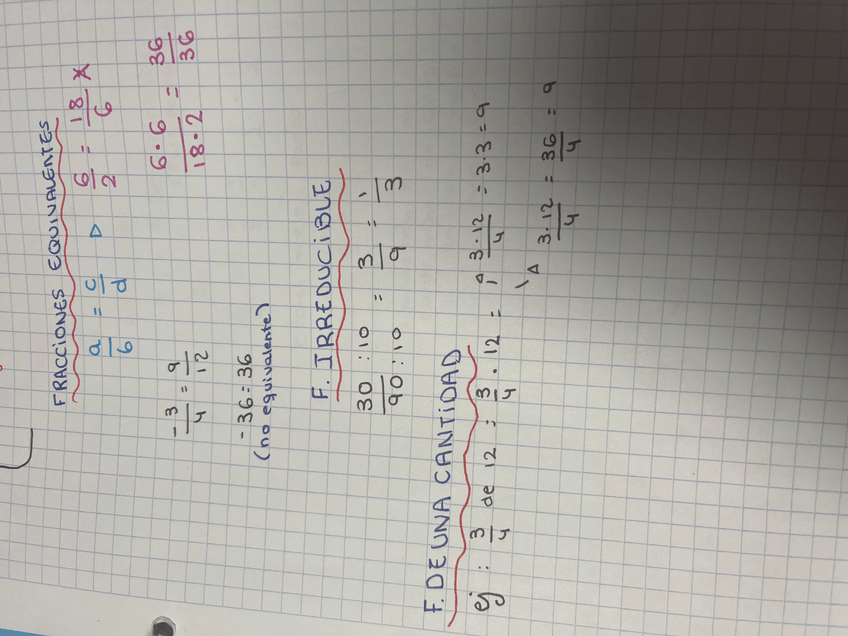 FRACCIONES EQUIVALENTES
a/b = c/d ▷ 6/2 = 18/6 *
6·6/18·2 = 36/36
-3/4 = 9/12
-36 = 36
(no equivalente)
F. IRREDUCIBLE
30:10/90:10 = 3/9 = 1/3
F. DE UNA CANTIDAD
ej: 3/4 de 12 = 3/4 · 12 = 3·12/4 = 3·3 = 9
3·12/4 = 36/4 = 9